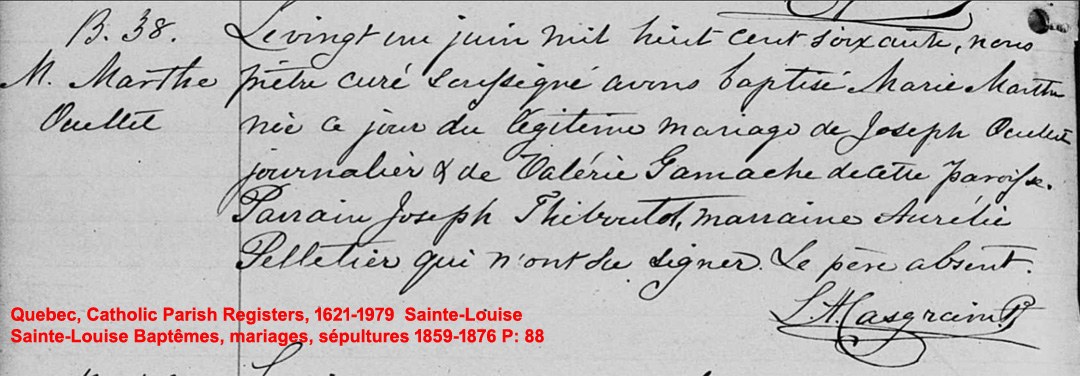 B. 38.
M. Marthe
Ouellet
Le vingt un juin mil huit cent soixante, nous
prêtre curé soussigné avons baptisé Marie Marthe
née ce jour du légitime mariage de Joseph Ouellet
journalier & de Valérie Gamache de cette paroisse.
Parrain Joseph Thiboutot, marraine Aurélie
Pelletier qui n'ont su signer. Le père absent.
L. A. Casgrain Ptre
Quebec, Catholic Parish Registers, 1621-1979 Sainte-Louise
Sainte-Louise Baptêmes, mariages, sépultures 1859-1876 P: 88